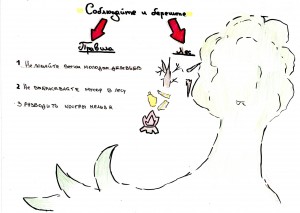 Соблюдайте и берегите
Правила
Лес
1 Не ломайте ветки молодых деревьев
2 Не выбрасывайте мусор в лесу
3 Разводить костры нельзя